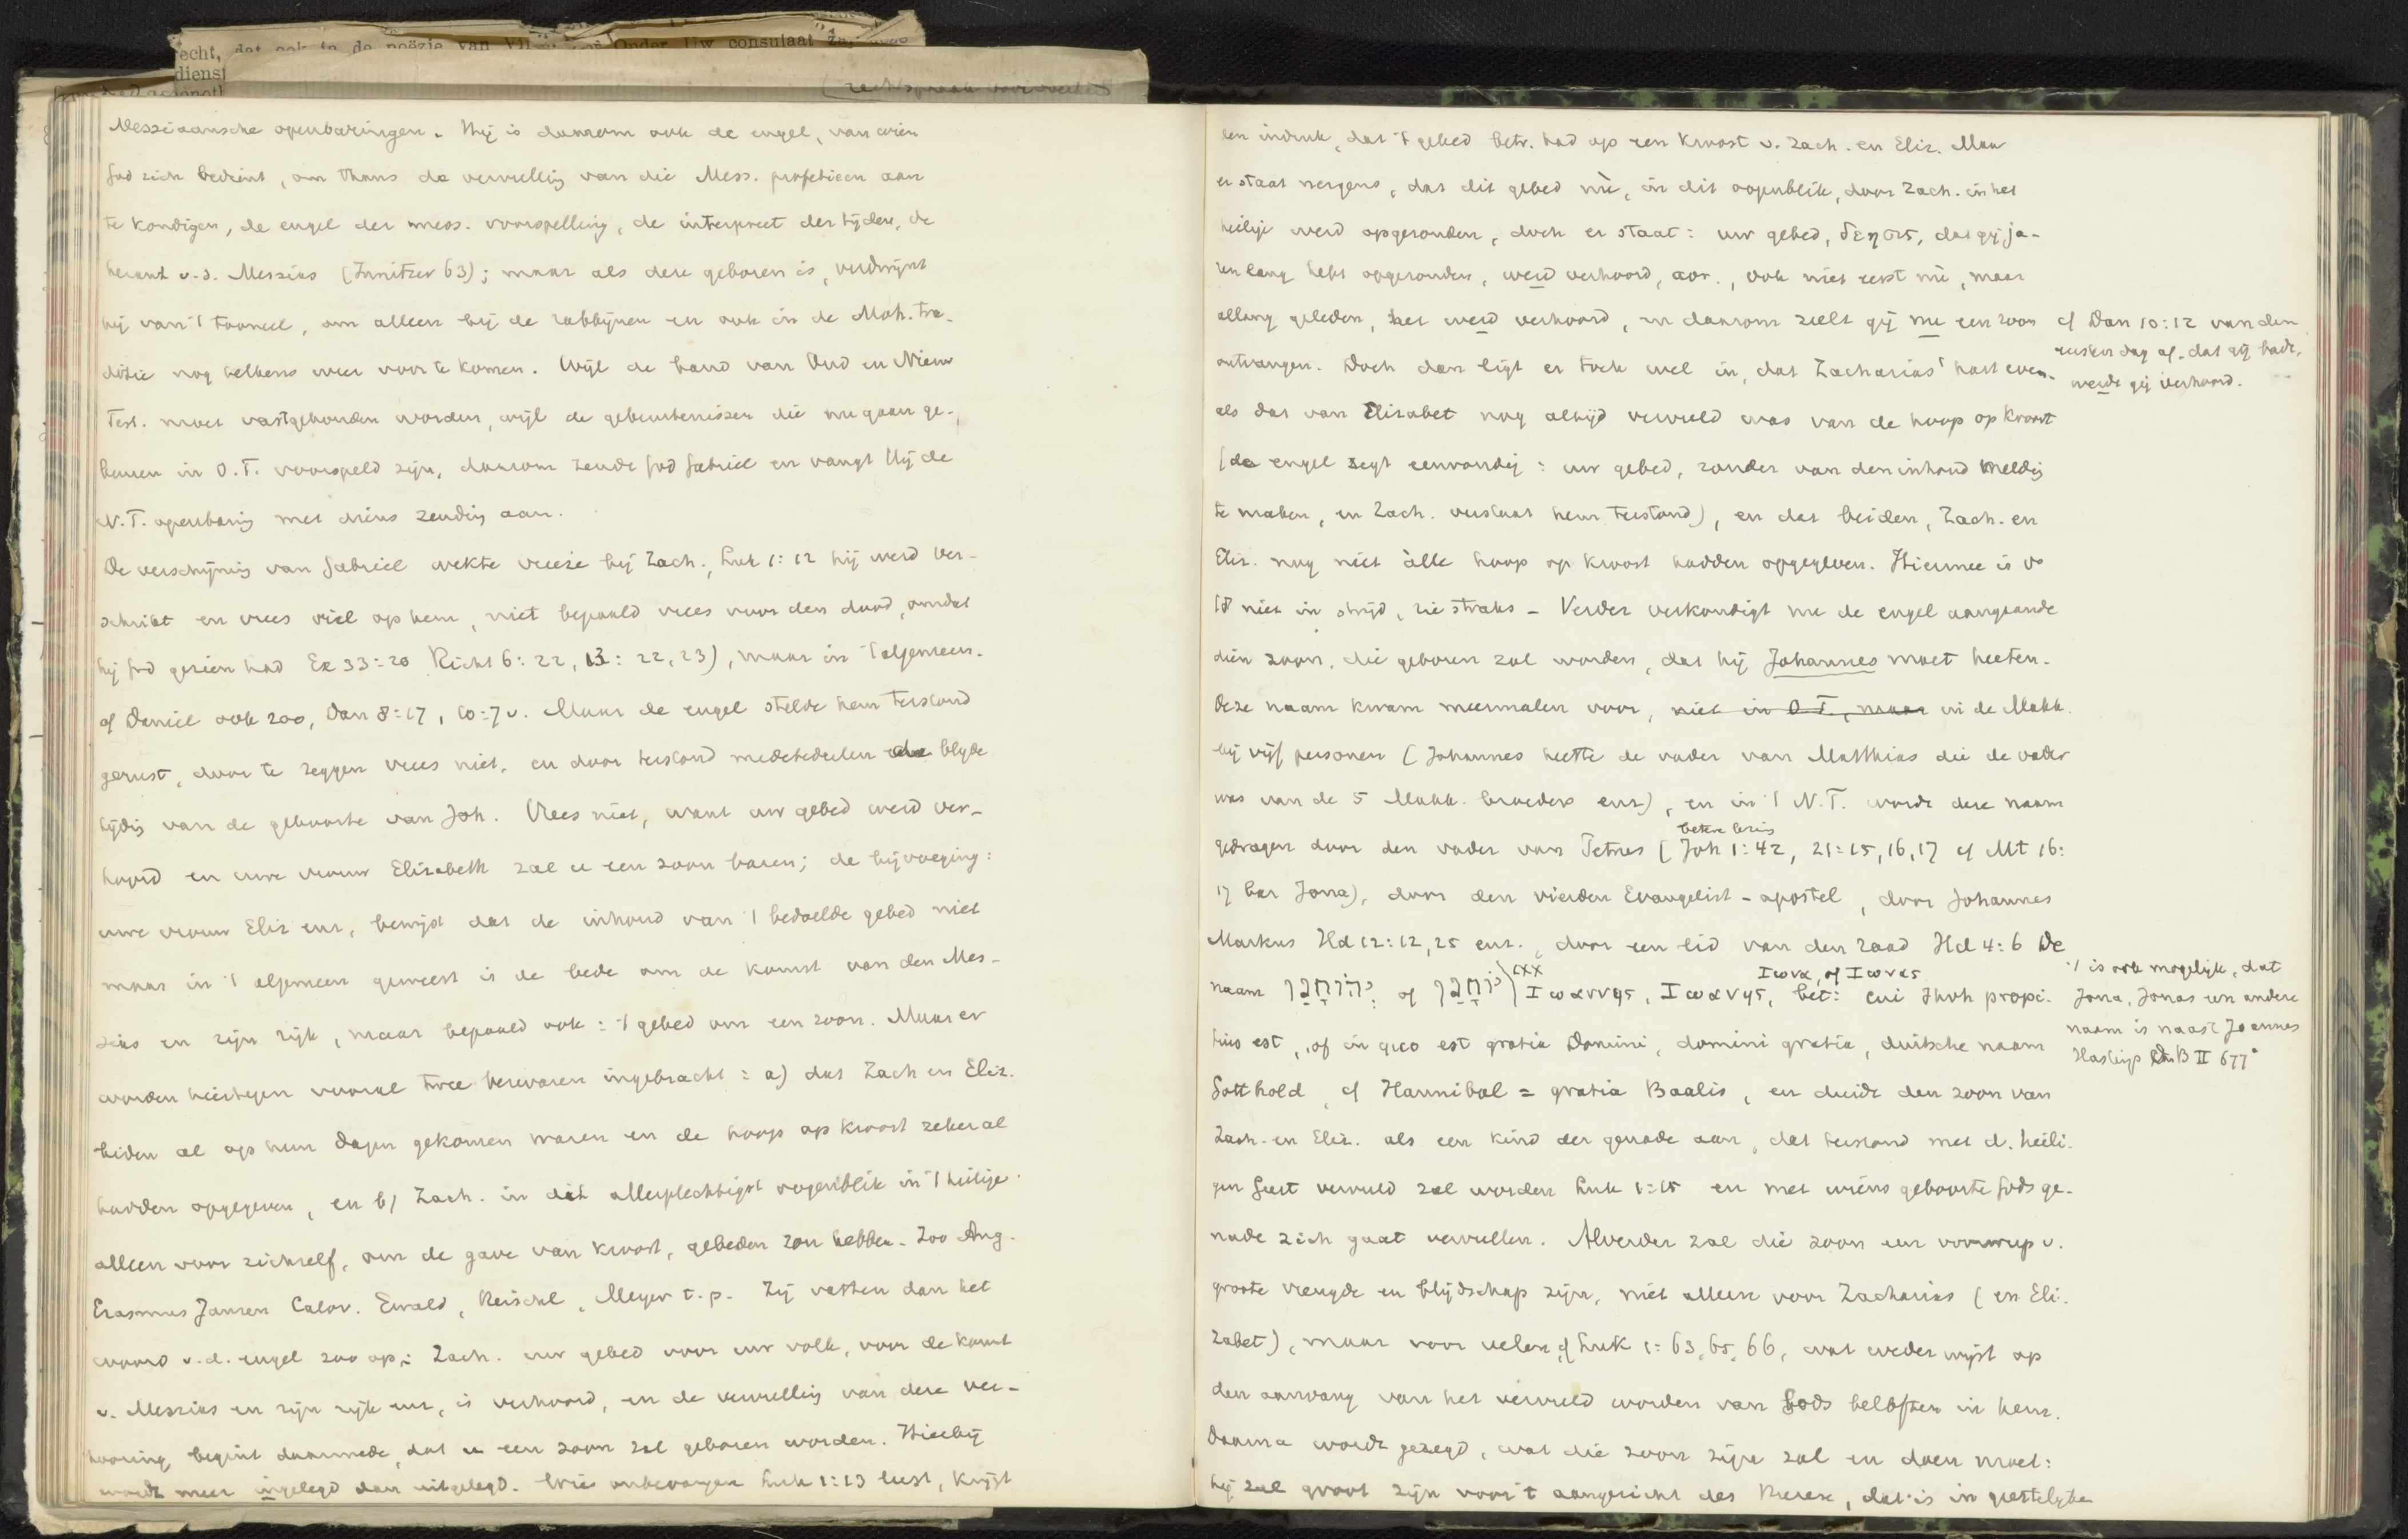 echt, dat ook in de poëzie van
Onder Uw consulaat
dienst
Messiaansche openbaringen. Hij is daarom ook de engel, van wien
God zich bedient, om thans de vervulling van die Mess. profetieen aan
te kondigen, de engel der mess. voorspelling, de interpreet der tijden, de
heraut v.d. Messias (Innitzer 63); maar als deze geboren is, verdwijnt
hij van 't tooneel, om alleen bij de rabbijnen en ook in de Moh. tra-
ditie nog telkens weer voor te komen. Wijl de band van Oud en Nieuw
Test. moet vastgehouden worden, wijl de gebeurtenissen die nu gaan ge-
beuren in O.T. voorspeld zijn, daarom zendt God Gabriel en vangt Hij de
N.T. openbaring met diens zending aan.
De verschijning van Gabriel wekte vreeze bij Zach., Luk 1:12 hij werd ver-
schrikt en vrees viel op hem, niet bepaald vrees voor den dood, omdat
hij God gezien had Ex 33:20 Richt 6:22, 13:22, 23), maar in 't algemeen.
cf Daniel ook zoo, Dan 8:17, 10:7 v. Maar de engel stelde hem terstond
gerust, door te zeggen vrees niet, en door terstond mededeelen de blyde
tijding van de geboorte van Joh. Vrees niet, want uw gebed werd ver-
hoord en uwe vrouw Elizabeth zal u een zoon baren; de bijvoeging:
uwe vrouw Eliz enz, bewijst dat de inhoud van 't bedoelde gebed niet
maar in 't algemeen geweest is de bede om de komst van den Mes-
sias en zijn rijk, maar bepaald ook: 't gebed om een zoon. Maar er
worden hiertegen vooral twee bezwaren ingebracht: a) dat Zach en Eliz.
beiden al op hun dagen gekomen waren en de hoop op kroost zeker al
hadden opgegeven, en b) Zach. in dit allerplechtigst oogenblik in 't heilige
alleen voor zichzelf, om de gave van kroost, gebeden zou hebben. Zoo Aug.
Erasmus Jansen Calov. Ewald, Reischl, Meyer t.p. Zij vatten dan het
woord v.d. engel zoo op: Zach. uw gebed voor uw volk, voor de komst
v. Messias en zijn rijk enz, is verhoord, en de vervulling van deze ver-
hooring begint daarmede, dat u een zoon zal geboren worden. Hierbij
wordt meer ingelegd dan uitgelegd. Wie onbevangen Luk 1:13 leest, krijgt
den indruk, dat 't gebed betr. had op een kroost v. Zach. en Eliz. Maar
er staat nergens, dat dit gebed nù, in dit oogenblik, door Zach. in het
heilige werd opgezonden, doch er staat: uw gebed, δεησις, dat gij ja-
ren lang hebt opgezonden, werd verhoord, aor., ook niet eerst nù, maar
allang geleden, het werd verhoord, en daarom zult gij nu een zoon
ontvangen. Doch dan ligt er toch wel in, dat Zacharias' hart even-
als dat van Elizabet nog altijd vervuld was van de hoop op kroost
(de engel zegt eenvoudig: uw gebed, zonder van den inhoud melding
te maken, en Zach. verstaat hem terstond), en dat beiden, Zach. en
Eliz. nog niet àlle hoop op kroost hadden opgegeven. Hiermee is vs
18 niet in strijd, zie straks – Verder verkondigt nu de engel aangaande
dien zoon, die geboren zal worden, dat hij Johannes moet heeten.
Deze naam kwam meermalen voor, niet in O.T., maar in de Makk.
bij vijf personen (Johannes heette de vader van Matthias die de vader
was van de 5 Makk. broeders enz), en in 't N.T. wordt deze naam
betere lezing
gedragen door den vader van Petrus (Joh 1:42, 21:15,16,17 cf Mt 16:
17 bar Jona), door den vierden Evangelist-apostel, door Johannes
Markus Hd 12:12,25 enz., door een lid van den raad Hd 4:6 De
LXX Ιωνα, of Ιωνας
naam יְהוֹחָנָן of יוֹחָנָן Ιωαννης, Ιωανης, bet: cui Jhvh propi-
tius est, of in quo est gratia Domini, domini gratia, duitsche naam
Gotthold, cf Hannibal = gratia Baalis, en duidt den zoon van
Zach. en Eliz. als een kind der genade aan, dat terstond met d. heili-
gen Geest vervuld zal worden Luk 1:15 en met wiens geboorte Gods ge-
nade zich gaat vervullen. Alverder zal die zoon een voorwerp v.
groote vreugde en blijdschap zijn, niet alleen voor Zacharias (en Eli-
zabet), maar voor velen, cf Luk 1:63, 65, 66, wat weder wijst op
den aanvang van het vervuld worden van Gods beloften in hem.
Daarna wordt gezegd, wat die zoon zijn zal en doen moet:
hij zal groot zijn voor 't aangezicht des Heeren, dat is in geestelyke
cf Dan 10:12 van den
eersten dag af. dat gij badt,
werdt gij verhoord.
't is ook mogelijk, dat
Jona, Jonas een andere
naam is naast Joannes
Hastings DB II 677